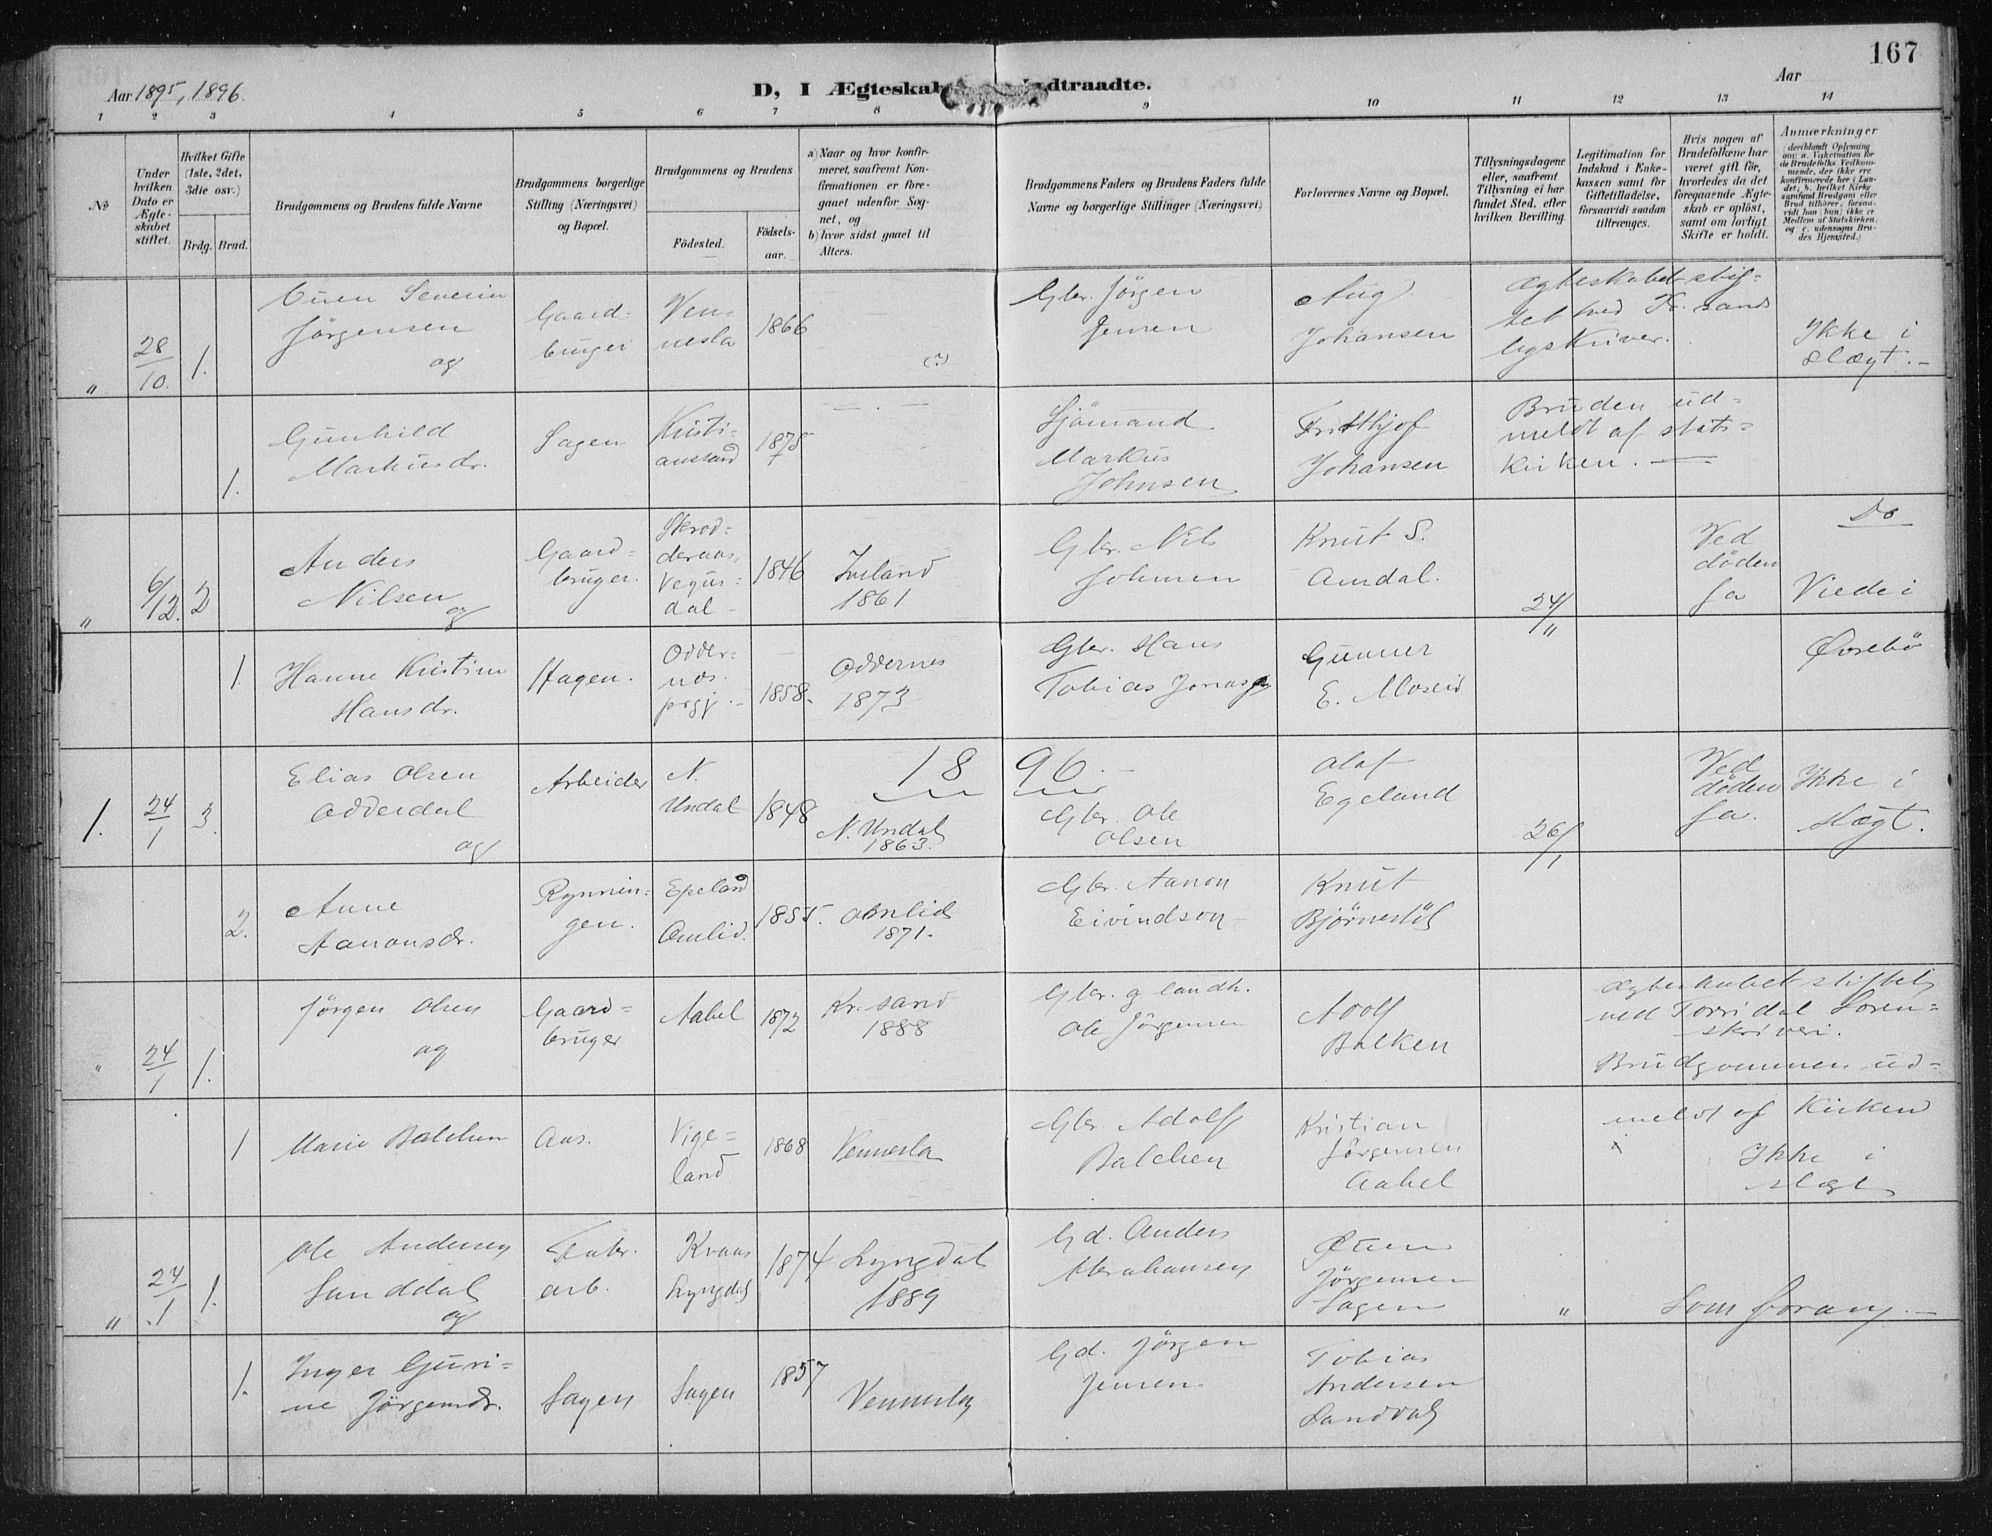 167
Aar 1895, 1896.
D, I Ægteskab
ndtraadte.
Aar
1 2 3 4 5 6 7 8 9 10 11 12 13 14
№
Under
hvilken
Dato er
Ægte-
skabet
stiftet.
Hvilket Gifte
(1ste, 2det,
3die osv.)
Brdg. Brud.
Brudgommens og Brudens fulde Navne
Brudgommens borgerlige
Stilling (Næringsvei)
og Bopæl.
Brudgommens og Brudens
Fødested.
Fødsels-
aar.
a) Naar og hvor konfir-
meret, saafremt Kon-
firmationen er fore-
gaaet udenfor Sog-
net, og
b) hvor sidst gaaet til
Alters.
Brudgommens Faders og Brudens Faders fulde
Navne og borgerlige Stillinger (Næringsvei)
Forlovernes Navne og Bopæl.
Tillysningsdagene
eller, saafremt
Tillysning ei har
fundet Sted, efter
hvilken Bevilling.
Legitimation for
Indskud i Enke-
kassen samt for
Giftetilladelse,
forsaavidt saadan
tiltrænges.
Hvis nogen af
Brudefolkene har
været gift før,
hvorledes da det
foregaaende Ægte-
skab er opløst,
samt om lovligt
Skifte er holdt.
Anmærkninger
(deriblandt Oplysning
om: a. Vakcination for
de Brudefolks Vedkom-
mende, der ikke ere
konfirmerede her i Lan-
det; b. hvilket Kirke
samfund Brudgom eller
Brud tilhører, forsaa-
vidt han (hun) ikke er
Medlem af Statskirken,
og c. udensogns Bru-
des Hjemsted.)
" 28/10 1.
Severin
Jörgensen
og
Gaard-
bruger
Ven-
nesla
1866
(?)
Gbr. Jörgen
Jensen
Aug
Johansen
Ægteskabet stif-
tet ved Kr.sands
Ikke i
Slægt. —
1.
Gunhild
Markusdr.
Sagen
Kristi-
ansand
1875
Sjömand
Markus
Johnsen
Frithjof
Johansen
Bruden ud-
meldt af stats-
Kirken. —
" 6/12. 2
Anders
Nilsen
og
Gaard-
bruger.
Vegus-
dal
1846
Iveland
1861
Gbr. Nils
Johnsen
Knut S.
Omdal.
24/11
Ved
døden
Ja
Do
Viede i
Øvrebö
1.
Hanne Kristine
Hansdr.
Hagen.
Odder-
nes
prgj. -
1858.
Oddernes
1873
Gbr. Hans
Tobias
Gunner
E. Moseid
1896.
1. 24/1 3.
Elias Olsen
Odderdal
og
Arbeider
N.
Undal
1848
N. Undal
1863.
Gbr. Ole
Olsen
Olaf
Egeland
26/1
Ved
døden
Ja.
Ikke i
slægt.
2.
Anne
Aanonsdr.
Rynnin-
gen.
Epeland
Omlid.
1855.
Omlid
1871.
Gbr. Aanon
Eivindson
Knut
Bjørnestöl
" 24/1 1.
Jörgen Olsen
og
Gaard-
bruger
Aabel
1872
Kr.sand
1888
Gbr. g landh.
Ole Jörgensen
Adolf
Balken
Ægteskabet stiftet
ved Torridal Soren-
skriveri.
Brudgommen ud-
1
Marie Balchen
Aas.
Vige-
land
1868
Vennesla
Gbr. Adolf
Balchen
Kristian
Jörgensen
Aabel
meldt af Kirken
x
Ikke i
slægt
" 24/1 1.
Ole Andersen
Sanddal
og
Fabr.
arb.
Kvaas
Lyngdal
1874
Lyngdal
1889
Gd. Anders
Abrahamsen
Jörgensen
Sagen
"
Som foran. —
1.
Inger Guri-
ne Jörgensdr.
Sagen
Sagen
1857
Vennesla
Gd. Jörgen
Jensen
Tobias
Andersen
Sanddal